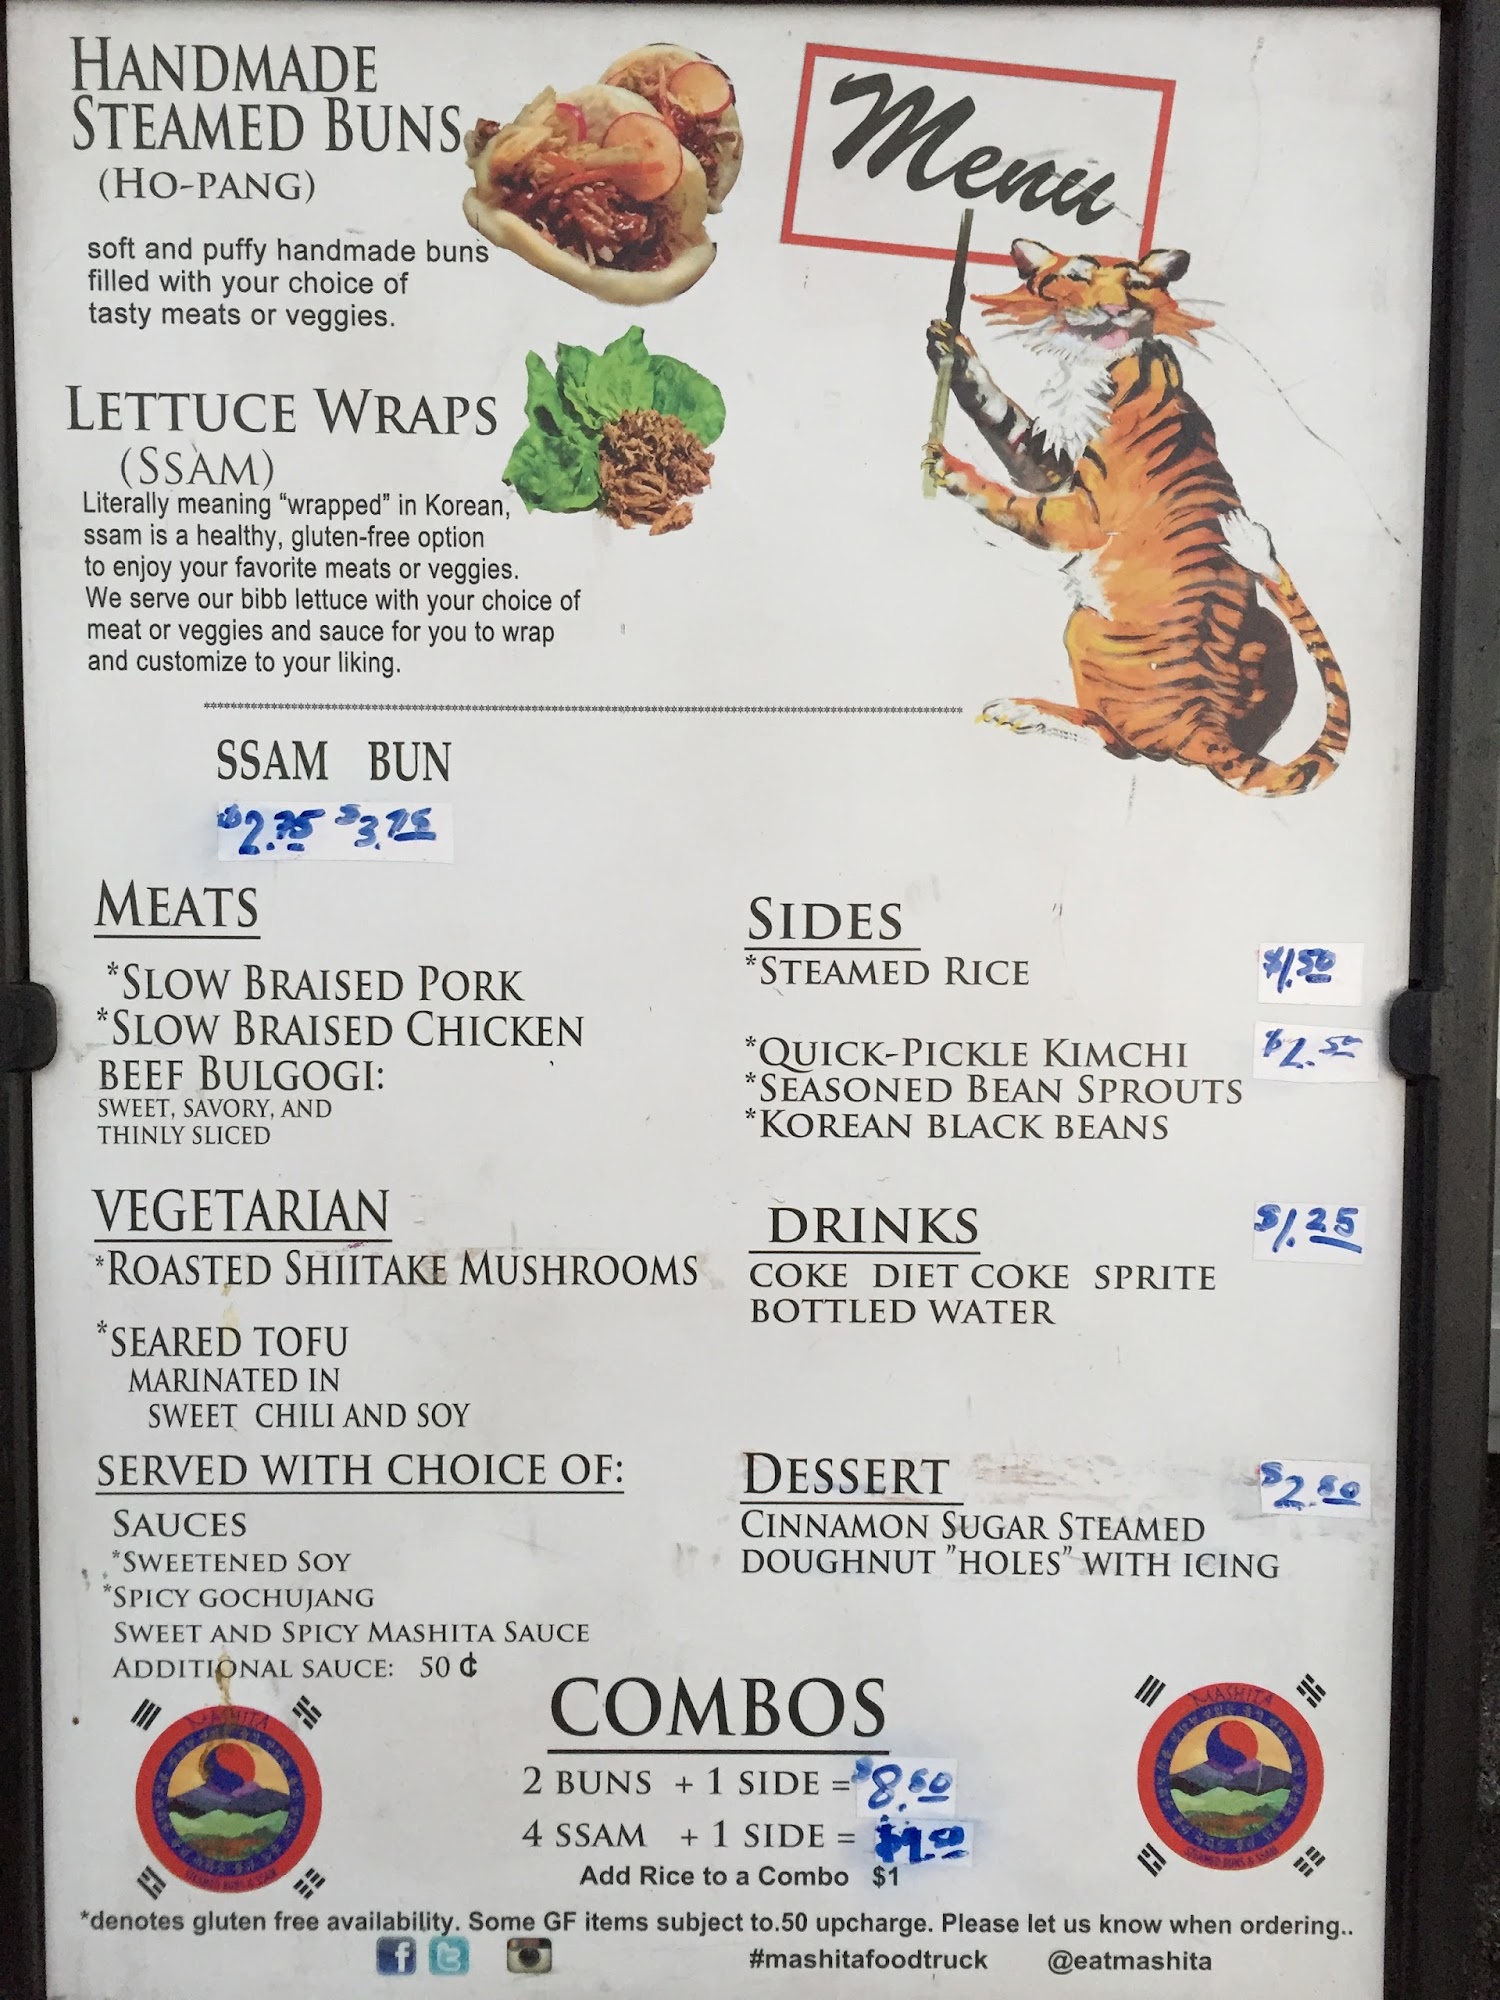 HANDMADE
STEAMED BUNS
(HO-PANG)
soft and puffy handmade buns
filled with your choice of
tasty meats or veggies.
Menu
LETTUCE WRAPS
(SSAM)
Literally meaning "wrapped" in Korean,
ssam is a healthy, gluten-free option
to enjoy your favorite meats or veggies.
We serve our bibb lettuce with your choice of
meat or veggies and sauce for you to wrap
and customize to your liking.
SSAM BUN
$2.75 $3.75
MEATS
*SLOW BRAISED PORK
*SLOW BRAISED CHICKEN
BEEF BULGOGI:
SWEET, SAVORY, AND
THINLY SLICED
VEGETARIAN
*ROASTED SHIITAKE MUSHROOMS
*SEARED TOFU
MARINATED IN
SWEET CHILI AND SOY
SERVED WITH CHOICE OF:
SAUCES
*SWEETENED SOY
*SPICY GOCHUJANG
SWEET AND SPICY MASHITA SAUCE
ADDITIONAL SAUCE: 50 ¢
SIDES
*STEAMED RICE $1.50
*QUICK-PICKLE KIMCHI $2.50
*SEASONED BEAN SPROUTS
*KOREAN BLACK BEANS
DRINKS $1.25
COKE DIET COKE SPRITE
BOTTLED WATER
DESSERT $2.50
CINNAMON SUGAR STEAMED
DOUGHNUT "HOLES" WITH ICING
COMBOS
2 BUNS + 1 SIDE = $8.50
4 SSAM + 1 SIDE =
Add Rice to a Combo $1
MASHITA
MASHITA
STEAMED BUNS & SSAM
*denotes gluten free availability. Some GF items subject to.50 upcharge. Please let us know when ordering..
#mashitafoodtruck @eatmashita